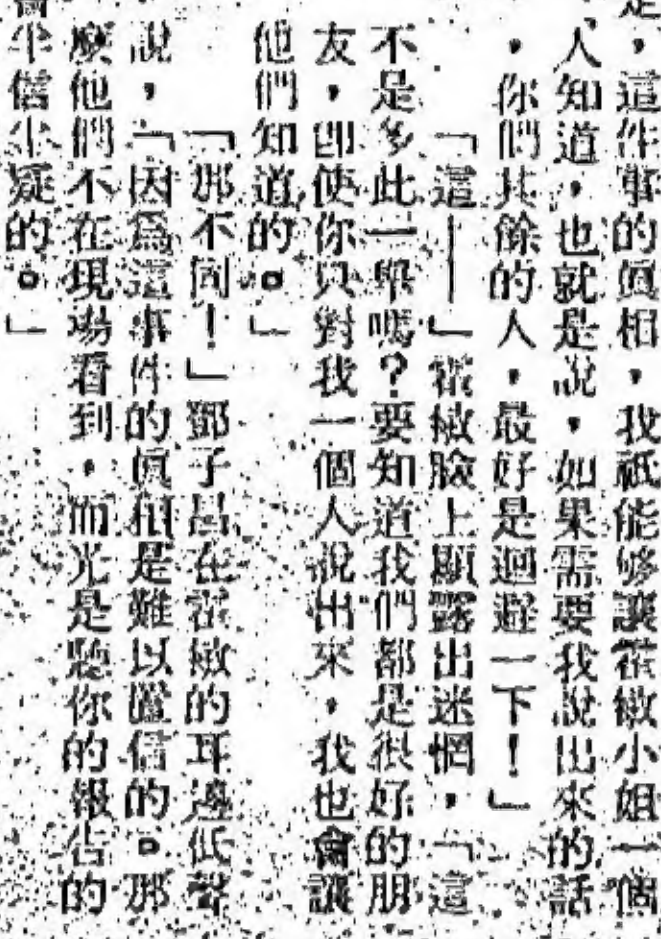 是,這件事的眞相,我祇能够讓薇小姐一個
人知道,也就是說,如果需要我說出來的話
,你們其餘的人,最好是迴避一下!」
「這——」薇臉上顯露出迷惘,「這
不是多此一舉嗎?要知道我們都是很好的朋
友,即使你只對我一個人說出來,我也會讓
他們知道的。」
「那不同!」鄧子昌在薇的耳邊低聲
說,「因爲這事件的眞相是難以置信的。那
麽他們不在現場看到,而光是聽你的報告的
半信半疑的。」